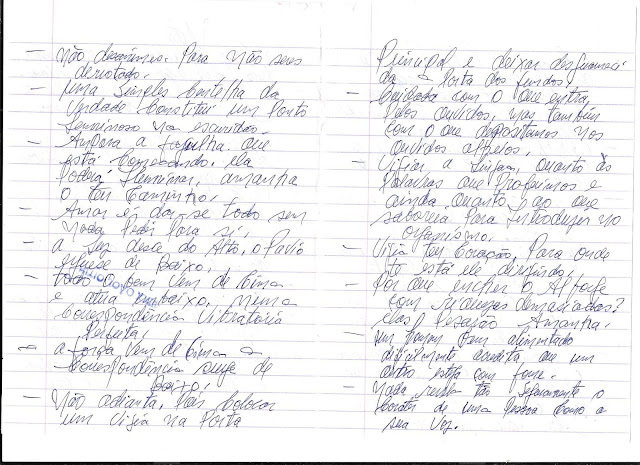 — Não desanimes. Para não seres
derrotado.
— Uma simples centelha da
Verdade constitui um ponto
luminoso na escuridão.
— Ampara a fagulha que
está começando, ela
poderá iluminar, amanhã
o teu caminho.
— Amar é dar-se todo sem
nada pedir para si.
— a luz desce do Alto, o pavio
ergue-se de baixo.
— todo o bem vem de cima
e atua em baixo, numa
correspondência vibratória
perfeita.
— a força vem de cima a
correspondência surge de
baixo.
— Não adianta, pois colocar
um vigia na porta
principal e deixar desguarneci
da a porta dos fundos
— Cuidado com o que entra
pelos ouvidos, mas também
com o que depositamos nos
ouvidos alheios.
— Vigiar a língua, quanto às
palavras que proferimos e
ainda quanto ao que
saboreia para introduzir no
organismo.
— Vigia teu coração, para onde
te está ele dirigindo;
— Por que encher o Alforge
com riquezas demasiadas?
elas pesarão amanhã.
— um homem bem alimentado
dificilmente acredita que um
outro esteja com fome.
— Nada revela tão seguramente o
caráter de uma pessoa como a
sua voz.